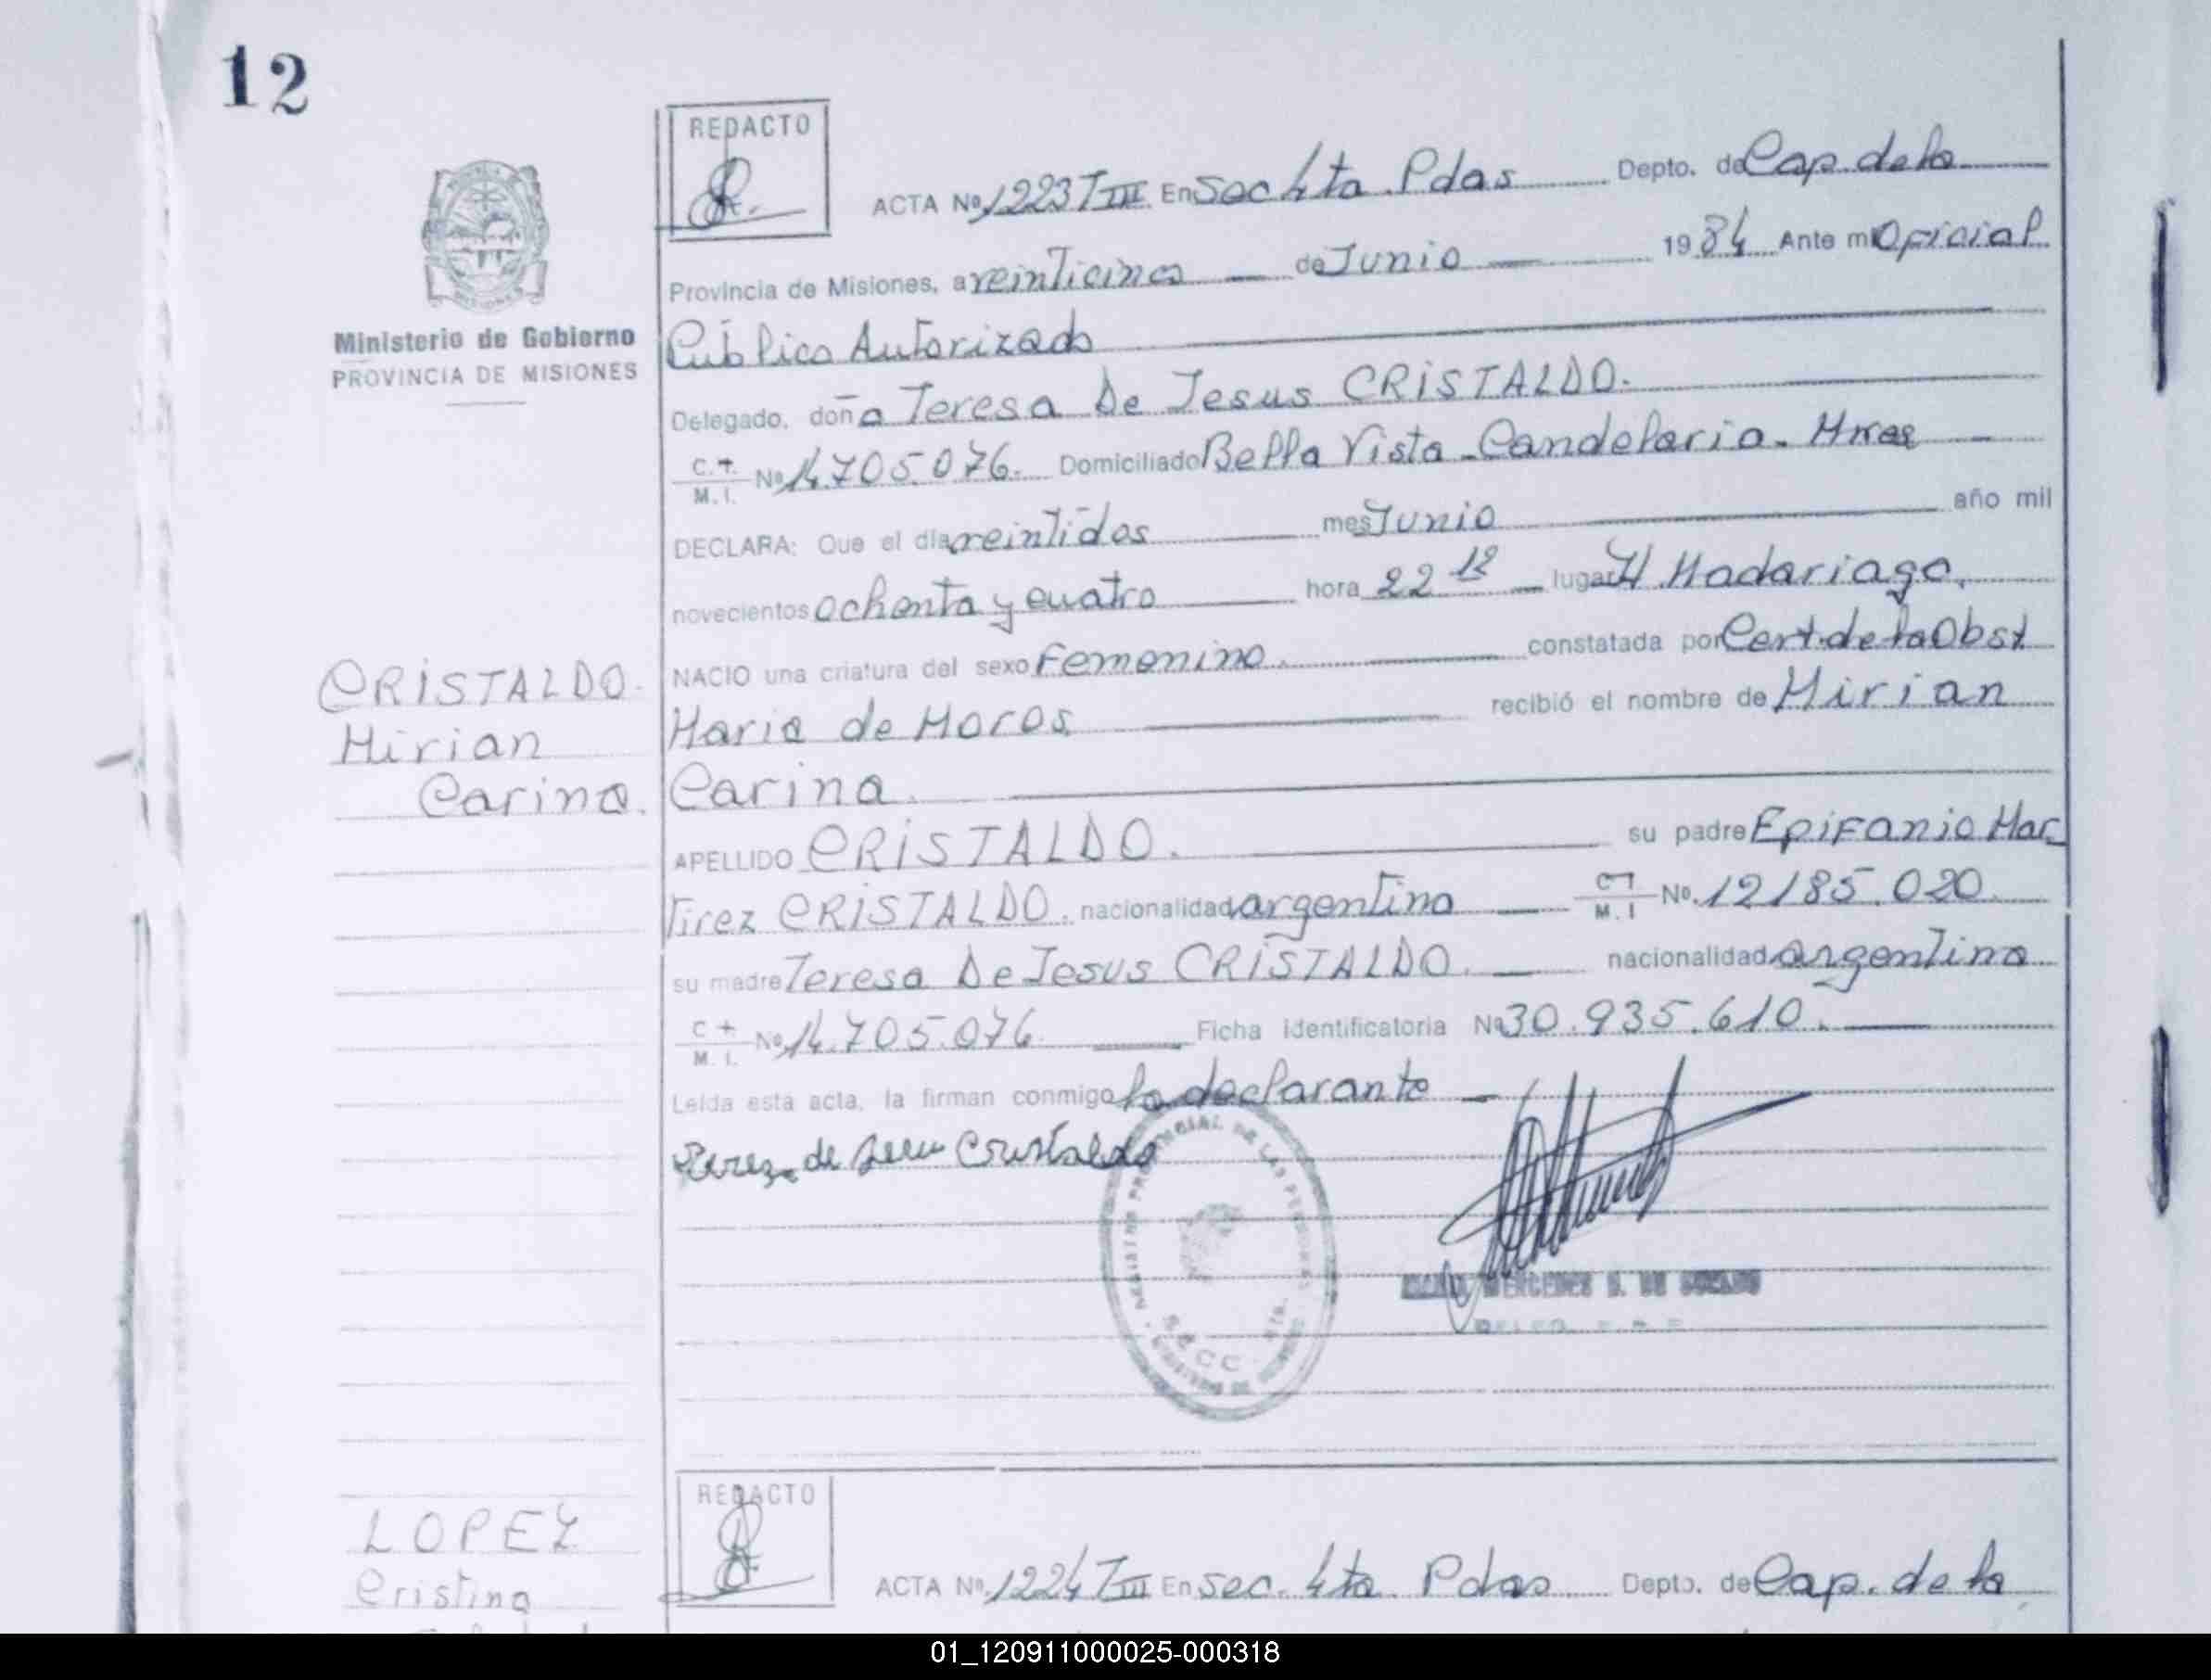 12
REDACTO
ACTA Nº 1223 TIII En Sec 4ta Pdas Depto. de Cap. de la
Provincia de Misiones, a veinticinco de Junio 1984 Ante mi Oficial
Ministerio de Gobierno
PROVINCIA DE MISIONES
Público Autorizado
Delegado, doña Teresa De Jesus CRISTALDO.
C.I. M.I. Nº 14.705.076. Domiciliado Bella Vista - Candelaria - Mnes
DECLARA: Que el día veintidos mes Junio año mil
novecientos ochenta y cuatro hora 22 lugar H Madariaga,
NACIO una criatura del sexo Femenino. constatada por Cert. de la Obst
CRISTALDO.
Maria de Moros recibió el nombre de Mirian
Mirian
Carina.
Carina.
APELLIDO CRISTALDO. su padre Epifanio Mar
tirez CRISTALDO. nacionalidad argentina M.I Nº. 12185.020.
su madre Teresa De Jesus CRISTALDO. nacionalidad argentina
M.I. Nº 14.705.076. Ficha identificatoria Nº 30.935.610.
Leída esta acta, la firman conmigo la declarante
de Cristaldo
REGISTRO PROVINCIAL DE LAS PERSONAS
MERCEDES
LOPEZ
Cristina
REDACTO
ACTA Nº. 1224 TIII En Sec. 4ta Pdas Depto. de Cap. de la
01_120911000025-000318